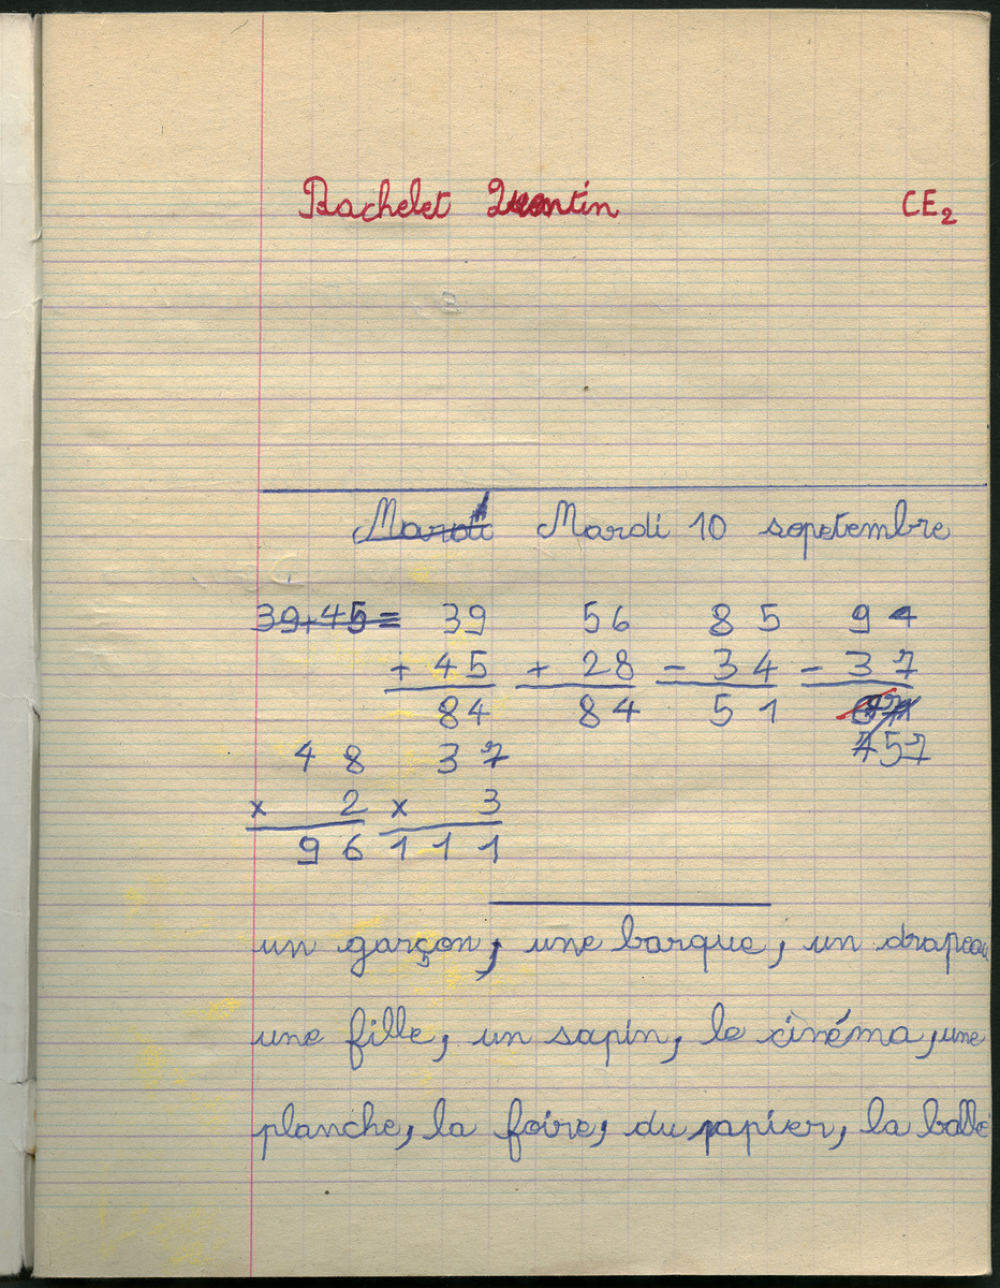 Bachelet Quentin CE2
Mardi Mardi 10 sopetembre
39+45= 39 56 85 94
+ 45 + 28 - 34 - 37
84 84 51
57
48 37
x 2 x 3
96 111
un garçon, une barque, un drapeau
une fille, un sapin, le cinéma, une
planche, la foire, du papier, la balle